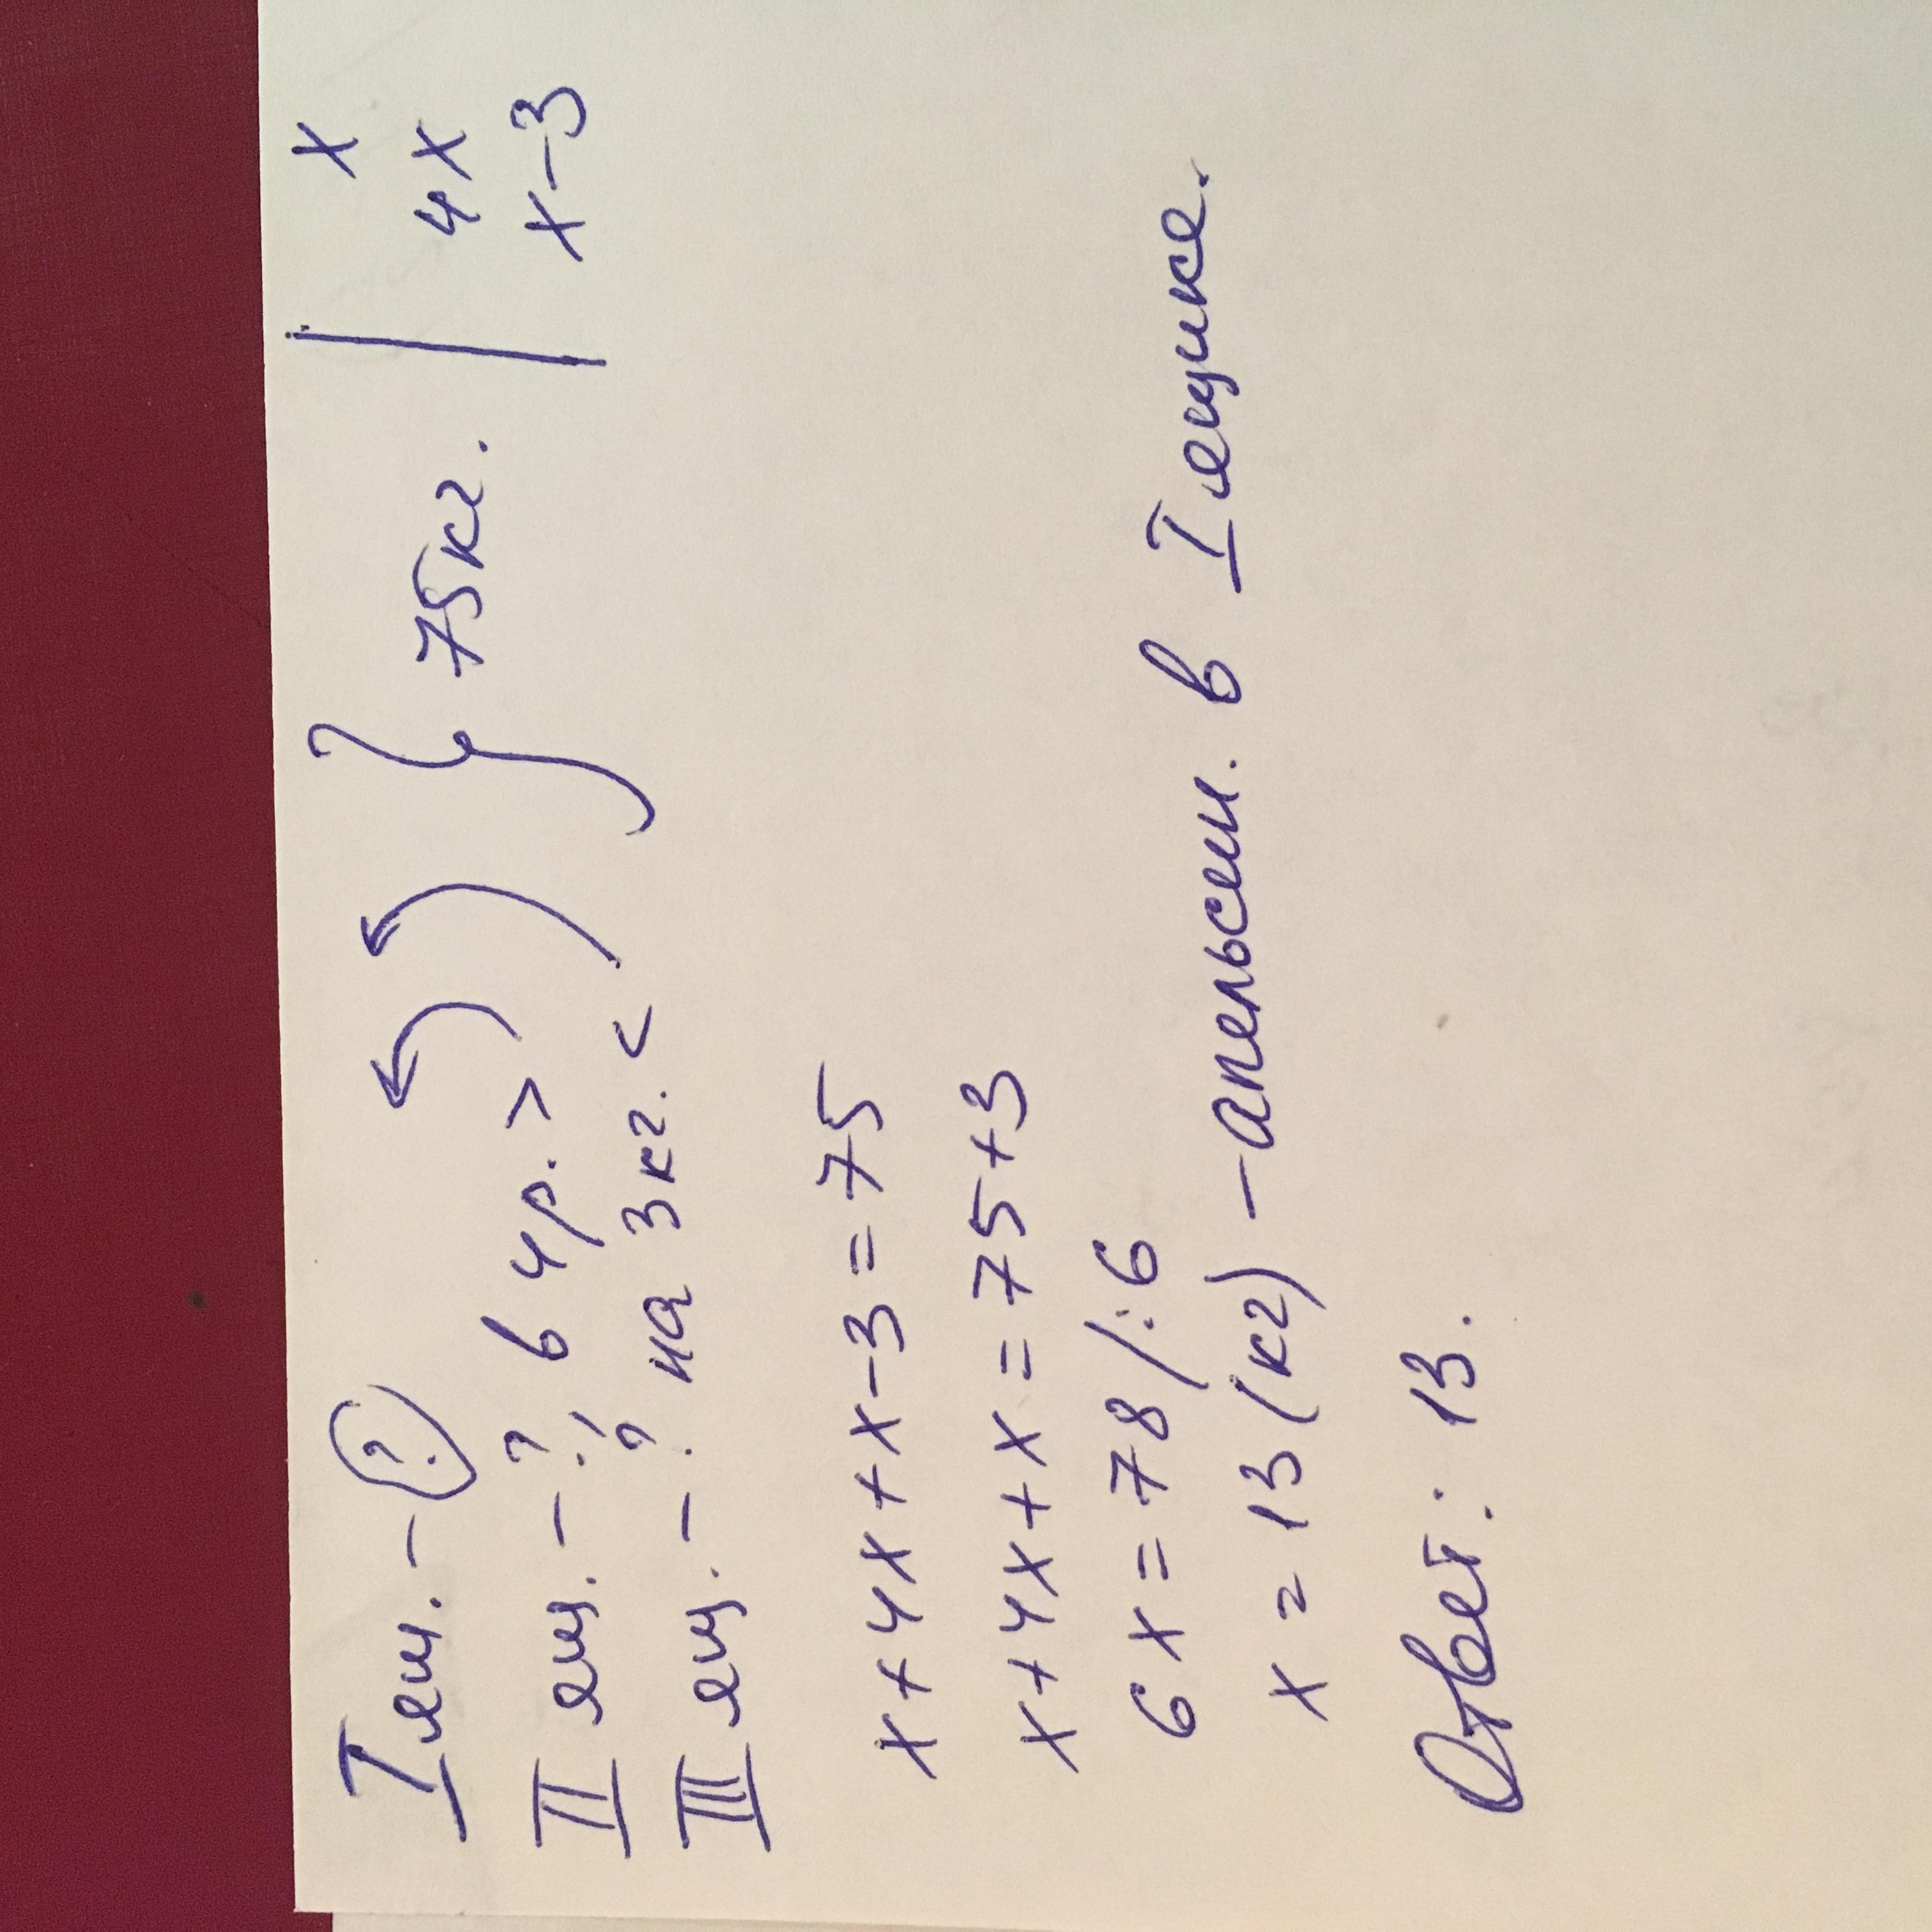 I ящ. - ? } 75 кг. | x
II ящ. - ? в 4 р. > 4x
III ящ. - ? на 3 кг. < x-3
x+4x+x-3=75
x+4x+x=75+3
6x=78 /:6
x=13 (кг) - апельсин. в I ящике.
Ответ: 13.